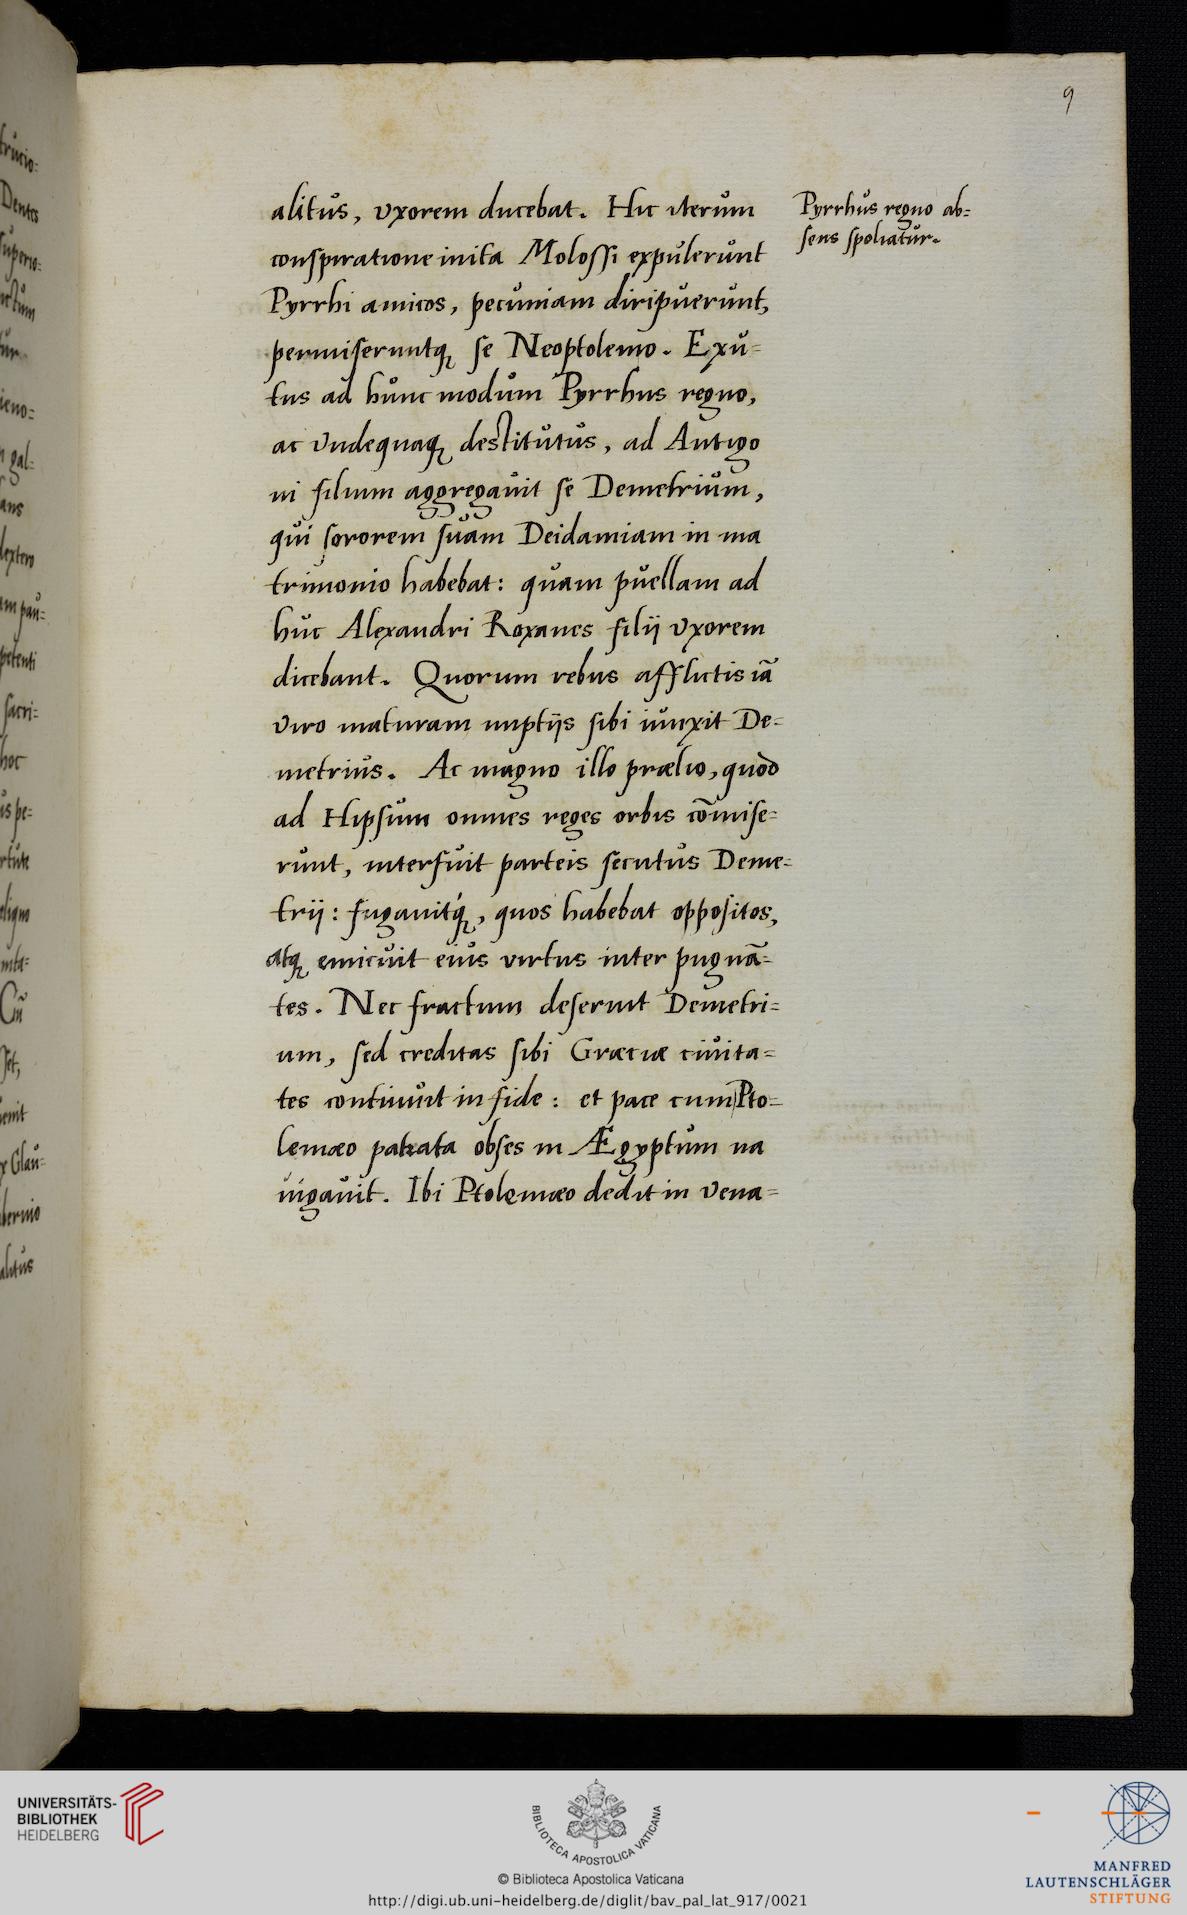 9
alitus, vxorem ducebat. Hic iterum
conspiratione inita Molossi expulerunt
Pyrrhi amicos, pecuniam diripuerunt,
permiseruntq; se Neoptolemo. Exu=
tus ad hunc modum Pyrrhus regno,
ac vndequaq; destitutus, ad Antigo
ni filium aggregauit se Demetrium,
qui sororem suam Deidamiam in ma
trimonio habebat: quam puellam ad
huc Alexandri Roxanes filij vxorem
dicebant. Quorum rebus afflictis iã
viro maturam nuptijs sibi iunxit De=
metrius. Ac magno illo prælio, quod
ad Hipsum omnes reges orbis cõmise=
runt, interfuit parteis secutus Deme=
trij: fugauitq́;, quos habebat oppositos,
atq; emicuit eius virtus inter pugnã=
tes. Nec fractum deseruit Demetri=
um, sed creditas sibi Græciæ ciuita=
tes continuit in fide: et pace cum Pto=
lemæo patrata obses in Ægyptum na
uigauit. Ibi Ptolemæo dedit in vena=
Pyrrhus regno ab=
sens spoliatur.
UNIVERSITÄTS-
BIBLIOTHEK
HEIDELBERG
BIBLIOTECA APOSTOLICA VATICANA
© Biblioteca Apostolica Vaticana
http://digi.ub.uni-heidelberg.de/diglit/bav_pal_lat_917/0021
MANFRED
LAUTENSCHLÄGER
STIFTUNG